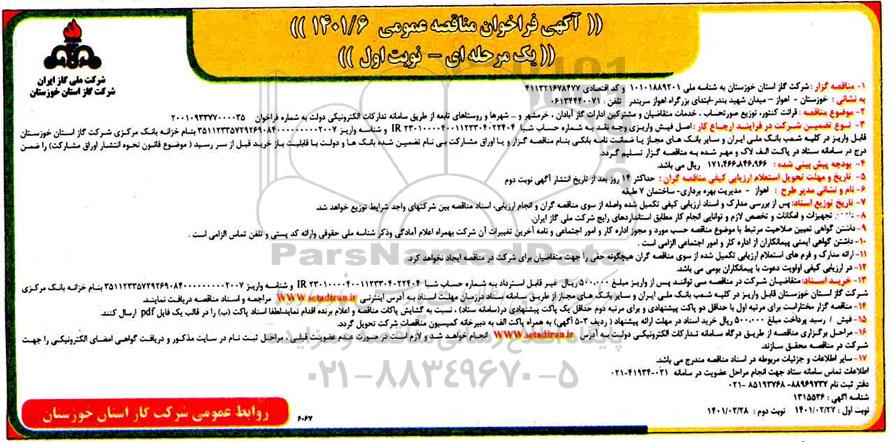 (( آگهی فراخوان مناقصه عمومی ۱۴۰۱/۶ ))
(( یک مرحله ای - نوبت اول ))
شرکت ملی گاز ایران
شرکت گاز استان خوزستان
۱- مناقصه گزار : شرکت گاز استان خوزستان به شناسه ملی ۱۰۱۰۱۸۸۹۲۰۱ و کد اقتصادی ۴۱۱۳۲۱۶۷۸۴۷۷
به نشانی : خوزستان - اهواز - میدان شهید بندر-ابتدای بزرگراه اهواز سربندر تلفن : ۰۶۱۳۴۴۴۰۰۷۱
۲- موضوع مناقصه : قرائت کنتور، توزیع صورتحساب ، خدمات متقاضیان و مشترکین ادارات گاز آبادان ، خرمشهر و - شهرها و روستاهای تابعه از طریق سامانه تدارکات الکترونیکی دولت به شماره فراخوان ۲۰۰۱۰۹۳۳۷۷۰۰۰۰۳۵
۳- نوع تضمین شرکت در فرآیند ارجاع کار : اصل فیش واریزی وجه نقد به شماره حساب شبا IR ۲۳۰۱۰۰۰۰۴۰۰۱۱۲۳۳۰۴۰۲۲۴۰۴ و شناسه واریز ۳۵۱۱۲۳۳۵۷۲۹۲۶۹۰۸۴۰۰۰۰۰۰۰۰۰۰۲۰۰۷ بنام خزانه بانک مرکزی شرکت گاز استان خوزستان
قابل واریز در کلیه شعب بانک ملی ایران و سایر بانک های مجاز یا ضمانت نامه بانکی بنام مناقصه گزار و یا اوراق مشارکت بی نام تضمین شده بانک ها و دولت با قابلیت باز خرید قبل از سر رسید ( موضوع قانون نحوه انتشار اوراق مشارکت) را ضمن
درج در سامانه ستاد در پاکت الف لاک و مهر شده به مناقصه گزار تسلیم گردد.
۴- بودجه پیش بینی شده : ۱۷۱،۴۶۶،۸۴۶،۹۶۶ ریال می باشد.
۵- تاریخ و مهلت تحویل استعلام ارزیابی کیفی مناقصه گران : حداکثر ۱۴ روز بعد از تاریخ انتشار آگهی نوبت دوم
۶- نام و نشانی مدیر طرح : اهواز - مدیریت بهره برداری- ساختمان ۷ طبقه
۷- تاریخ توزیع اسناد: پس از بررسی مدارک و اسناد ارزیابی کیفی تکمیل شده واصله از سوی مناقصه گران و انجام ارزیابی، اسناد مناقصه بین شرکتهای واجد شرایط توزیع خواهد شد.
۸- داشتن تجهیزات و امکانات و تخصص لازم و توانایی انجام کار مطابق استانداردهای رایج شرکت ملی گاز ایران.
۹- داشتن گواهی تعیین صلاحیت مرتبط با موضوع مناقصه حسب مورد و مجوز اداره کار و امور اجتماعی و نامه آخرین تغییرات آن شرکت بهمراه اعلام آمادگی وذکر شناسه ملی حقوقی وارائه کد پستی و تلفن تماس الزامی است .
۱۰- داشتن گواهی ایمنی پیمانکاران از اداره کار و امور اجتماعی الزامی است .
۱۱- ارائه مدارک و فرم های استعلام ارزیابی تکمیل شده از سوی مناقصه گران هیچگونه حقی را جهت متقاضیان برای شرکت در مناقصه ایجاد نخواهد کرد
۱۲- در ارزیابی کیفی اولویت دعوت با پیمانکاران بومی می باشد
۱۳- خرید اسناد: متقاضیان شرکت در مناقصه می توانند پس از واریز مبلغ ۵۰۰،۰۰۰ ریال غیر قابل استرداد به شماره حساب شبا IR ۲۳۰۱۰۰۰۰۴۰۰۱۱۲۳۳۰۴۰۲۲۴۰۴ و شناسه واریز ۳۵۱۱۲۳۳۵۷۲۹۲۶۹۰۸۴۰۰۰۰۰۰۰۰۰۰۲۰۰۷ بنام خزانه بانک مرکزی
شرکت گاز استان خوزستان قابل واریز در کلیه شعب بانک ملی ایران و سایر بانک های مجاز از طریق سامانه ستاد درزمان مهلت اسناد به آدرس اینترنتی www.setadiran.ir مراجعه و اسناد مناقصه دریافت نمایند.
۱۴- مناقصه گزار مختاراست برای مرتبه اول با حداقل دو پاکت پیشنهادی و برای مرتبه دوم حداقل یک پاکت پیشنهادی در(سامانه ستاد) ، نسبت به گشایش پاکات مناقصه و اعلام برنده اقدام نماید،لطفا اسناد پاکت (ب) را در قالب یک فایل pdf ارسال کنند.
۱۵- فیش / رسید پرداخت مبلغ ۵۰۰،۰۰۰ ریال خرید اسناد در مهلت ارائه پیشنهاد ( ردیف ۳-۵ آگهی) به همراه پاکت الف به دبیرخانه کمیسیون مناقصات شرکت تحویل گردد.
۱۶- مراحل برگزاری مناقصه از طریق درگاه سامانه تدارکات الکترونیکی دولت به آدرس www.setadiran.ir انجام خواهد شد و لازم است در صورت عدم عضویت قبلی ، مراحل ثبت نام در سایت مذکور و دریافت گواهی امضای الکترونیکی را جهت
شرکت در مناقصه محقق سازند.
۱۷- سایر اطلاعات و جزئیات مربوطه در اسناد مناقصه مندرج می باشد.
اطلاعات تماس سامانه ستاد جهت انجام مراحل عضویت در سامانه ۰۲۱-۴۱۹۳۴
دفتر ثبت نام ۸۸۹۶۹۷۳۷-۸۵۱۹۳۷۶۸ -۰۲۱
شناسه آگهی : ۱۳۱۵۵۳۶
نوبت اول : ۱۴۰۱/۰۲/۲۷ نوبت دوم : ۱۴۰۱/۰۲/۲۸
۶۰۶۷
روابط عمومی شرکت گاز استان خوزستان
ParsNamadData
۰۲۱-۸۸۳۴۹۶۷۰-۵